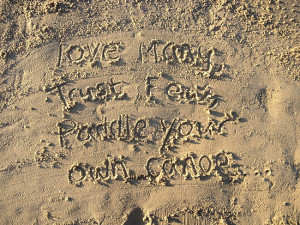 Love Many,
Trust Few,
Paddle your
own canoe...